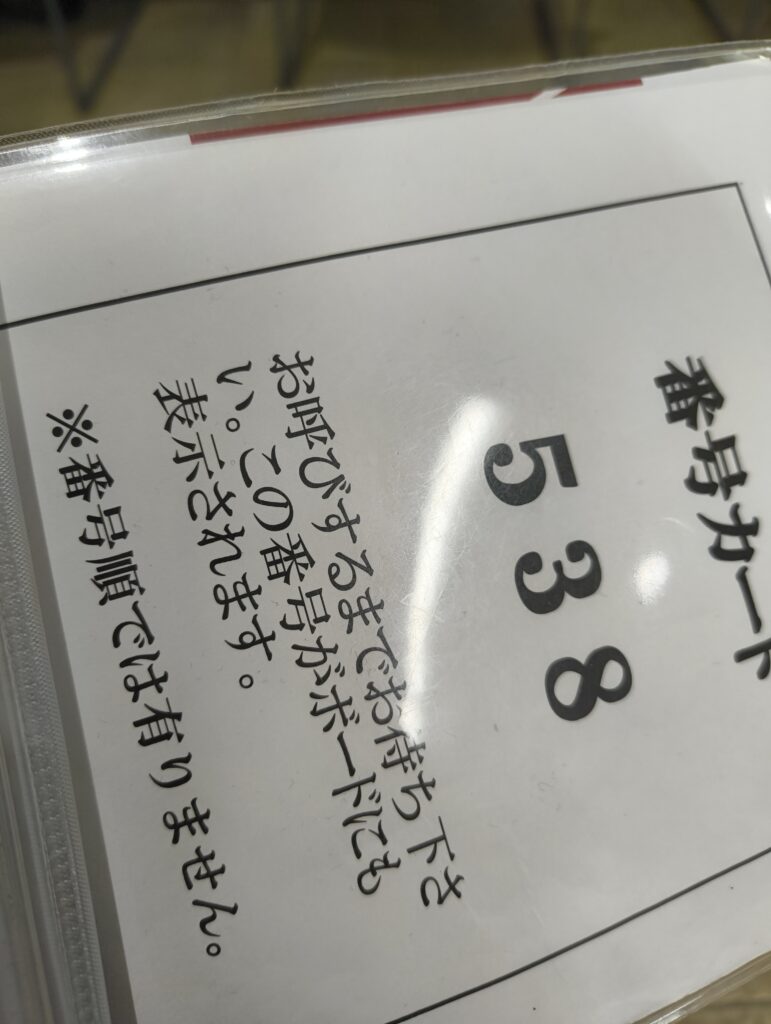 番号カード
538
お呼びするまでお待ち下さ
い。この番号がボードにも
表示されます。
※番号順では有りません。